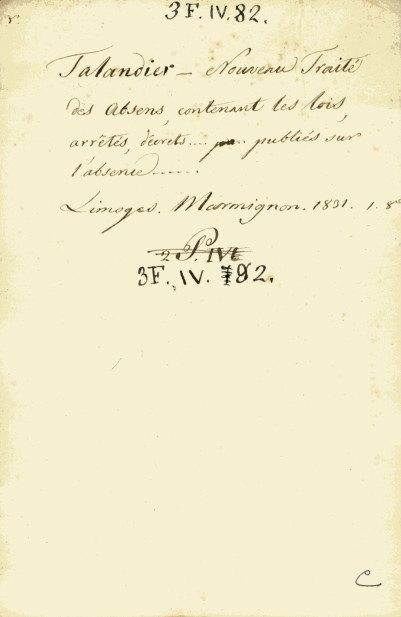 3F.IV.82.
r.
Talandier – Nouveau Traité
des Absens, contenant les lois,
arrêtés, décrets.... publiés sur
l'absence......
Limoges. Marmignon. 1831. 1. 8º
2 P. IVE
3F. IV. 82.
C